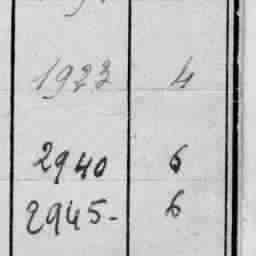 1923 4
2940 6
2945- 6